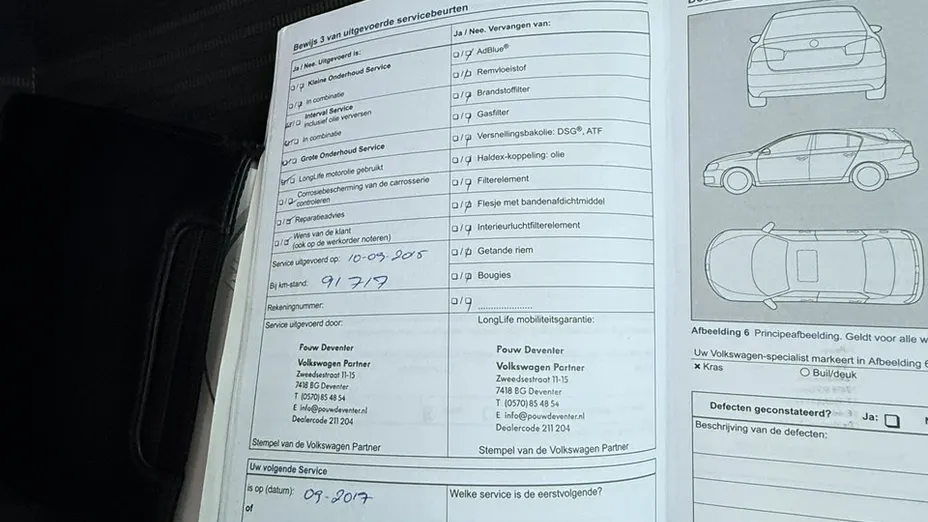 Bewijs 3 van uitgevoerde servicebeurten
Ja / Nee. Uitgevoerd is:
Kleine Onderhoud Service
In combinatie
Interval Service
inclusief olie verversen
In combinatie
Grote Onderhoud Service
LongLife motorolie gebruikt
Corrosiebescherming van de carrosserie
controleren
Reparatieadvies
Wens van de klant
(ook op de werkorder noteren)
Service uitgevoerd op: 10-09-2015
Bij km-stand: 91717
Rekeningnummer:
Service uitgevoerd door:
Pouw Deventer
Volkswagen Partner
Zweedsestraat 11-15
7418 BG Deventer
T (0570) 85 48 54
E info@pouwdeventer.nl
Dealercode 211 204
Stempel van de Volkswagen Partner
Ja / Nee. Vervangen van:
AdBlue®
Remvloeistof
Brandstoffilter
Gasfilter
Versnellingsbakolie: DSG®, ATF
Haldex-koppeling: olie
Filterelement
Flesje met bandenafdichtmiddel
Interieurluchtfilterelement
Getande riem
Bougies
LongLife mobiliteitsgarantie:
Pouw Deventer
Volkswagen Partner
Zweedsestraat 11-15
7418 BG Deventer
T (0570) 85 48 54
E info@pouwdeventer.nl
Dealercode 211 204
Stempel van de Volkswagen Partner
Uw volgende Service
is op (datum): 09-2017
of
Welke service is de eerstvolgende?
Afbeelding 6 Principeafbeelding. Geldt voor alle
Uw Volkswagen-specialist markeert in Afbeelding
× Kras
Buil/deuk
Defecten geconstateerd? Ja:
Beschrijving van de defecten: